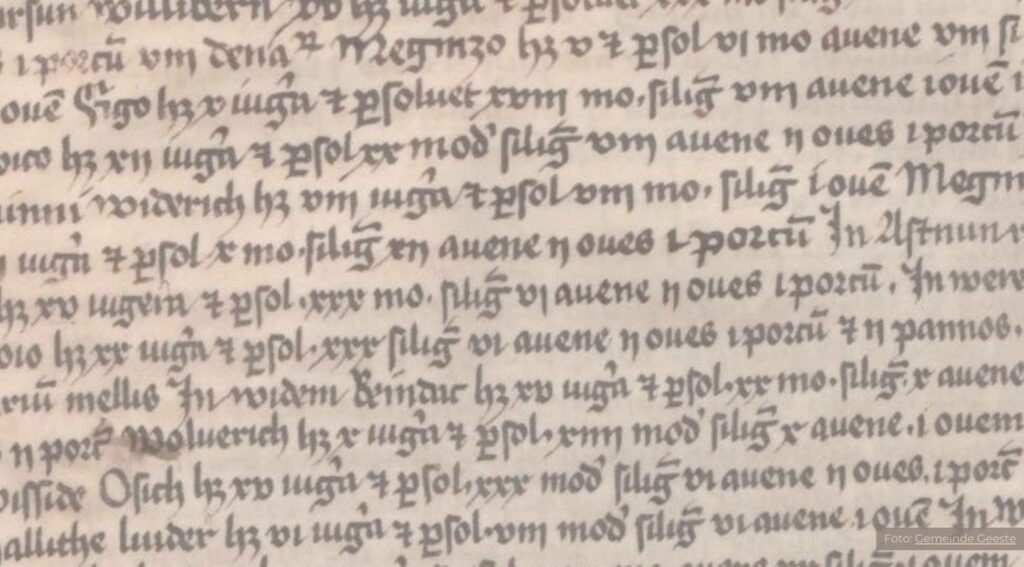 willidern xv hz iug̃a ⁊ p̱sol
i porcũ viii dena⁊ Meginzo hz v ⁊ p̱sol vi mo avene viii si
ovẽ hz x iug̃a ⁊ p̱solvet xviii mo. silig̃ viii avene i ovẽ i
hz xii iug̃a ⁊ p̱sol xx mod' silig̃ viii avene ii oves i porcũ
Widerich hz viii iug̃a ⁊ p̱sol viii mo. silig̃ i ovẽ Megin
iug̃a ⁊ p̱sol x mo. silig̃ xii avene ii oves i porcũ In Astnun
hz xv iugera ⁊ p̱sol. xxx mo. silig̃ vi avene ii oves i porcũ. In were
hz xx iug̃a ⁊ p̱sol. xxx silig̃ vi avene ii oves i porcũ ⁊ ii pannos.
mellis In widem Reindac hz xv iug̃a ⁊ p̱sol. xx mo. silig̃. x avene
ii porc̃ Wolverich hz x iug̃a ⁊ p̱sol. xiiii mod' silig̃ x avene. i ovem
Osich hz xv iug̃a ⁊ p̱sol. xxx mod' silig̃ vi avene ii oves. i porc̃
allithe liuder hz vi iug̃a ⁊ p̱sol. viii mod' silig̃ vi avene. i ovẽ In W
Foto: Gemeinde Geeste